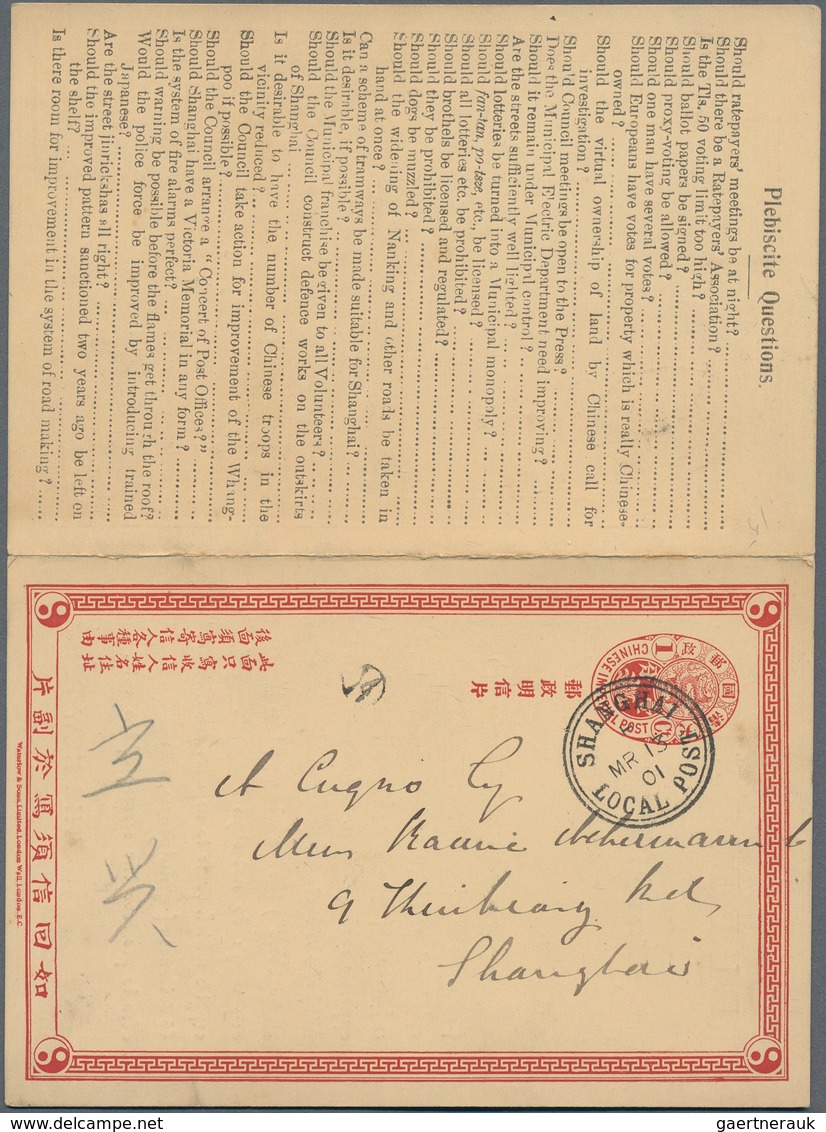 Plebiscite Questions.
Should ratepayers' meetings be at night?
Should there be a Ratepayers' Association?
Is the Tls. 50 voting limit too high?
Should ballot papers be signed?
Should proxy-voting be allowed?
Should one man have several votes?
Should Europeans have votes for property which is really Chinese-
owned?
Should the virtual ownership of land by Chinese call for
investigation?
Should Council meetings be open to the Press?
Does the Municipal Electric Department need improving?
Should it remain under Municipal control?
Are the streets sufficiently well lighted?
Should lotteries be turned into a Municipal monopoly?
Should fan-tan, po-tsze, etc., be licensed?
Should all lotteries etc. be prohibited?
Should brothels be licensed and regulated?
Should they be prohibited?
Should dogs be muzzled?
Should the widening of Nanking and other roads be taken in
hand at once?
Can a scheme of tramways be made suitable for Shanghai?
Is it desirable, if possible?
Should the Municipal franchise be given to all Volunteers?
Should the Council construct defence works on the outskirts
of Shanghai
Is it desirable to have the number of Chinese troops in the
vicinity reduced?
Should the Council take action for improvement of the Whang-
poo if possible?
Should the Council arrange a "Concert of Post Offices?"
Should Shanghai have a Victoria Memorial in any form?
Is the system of fire alarms perfect?
Should warning be possible before the flames get through the roof?
Would the police force be improved by introducing trained
Japanese?
Are the street jinrickshas all right?
Should the improved pattern sanctioned two years ago be left on
the shelf?
Is there room for improvement in the system of road making?
大清國郵政
CHINESE IMPERIAL POST
1 C
郵政明信片
此面只寫收信人姓名住址
後面須寫寄信人各種事由
如回信須寫於副片
Waterlow & Sons, Limited, London Wall, London, E.C.
SHANGHAI
MR 15
01
LOCAL POST
A
9
Shanghai
gaertnerauk